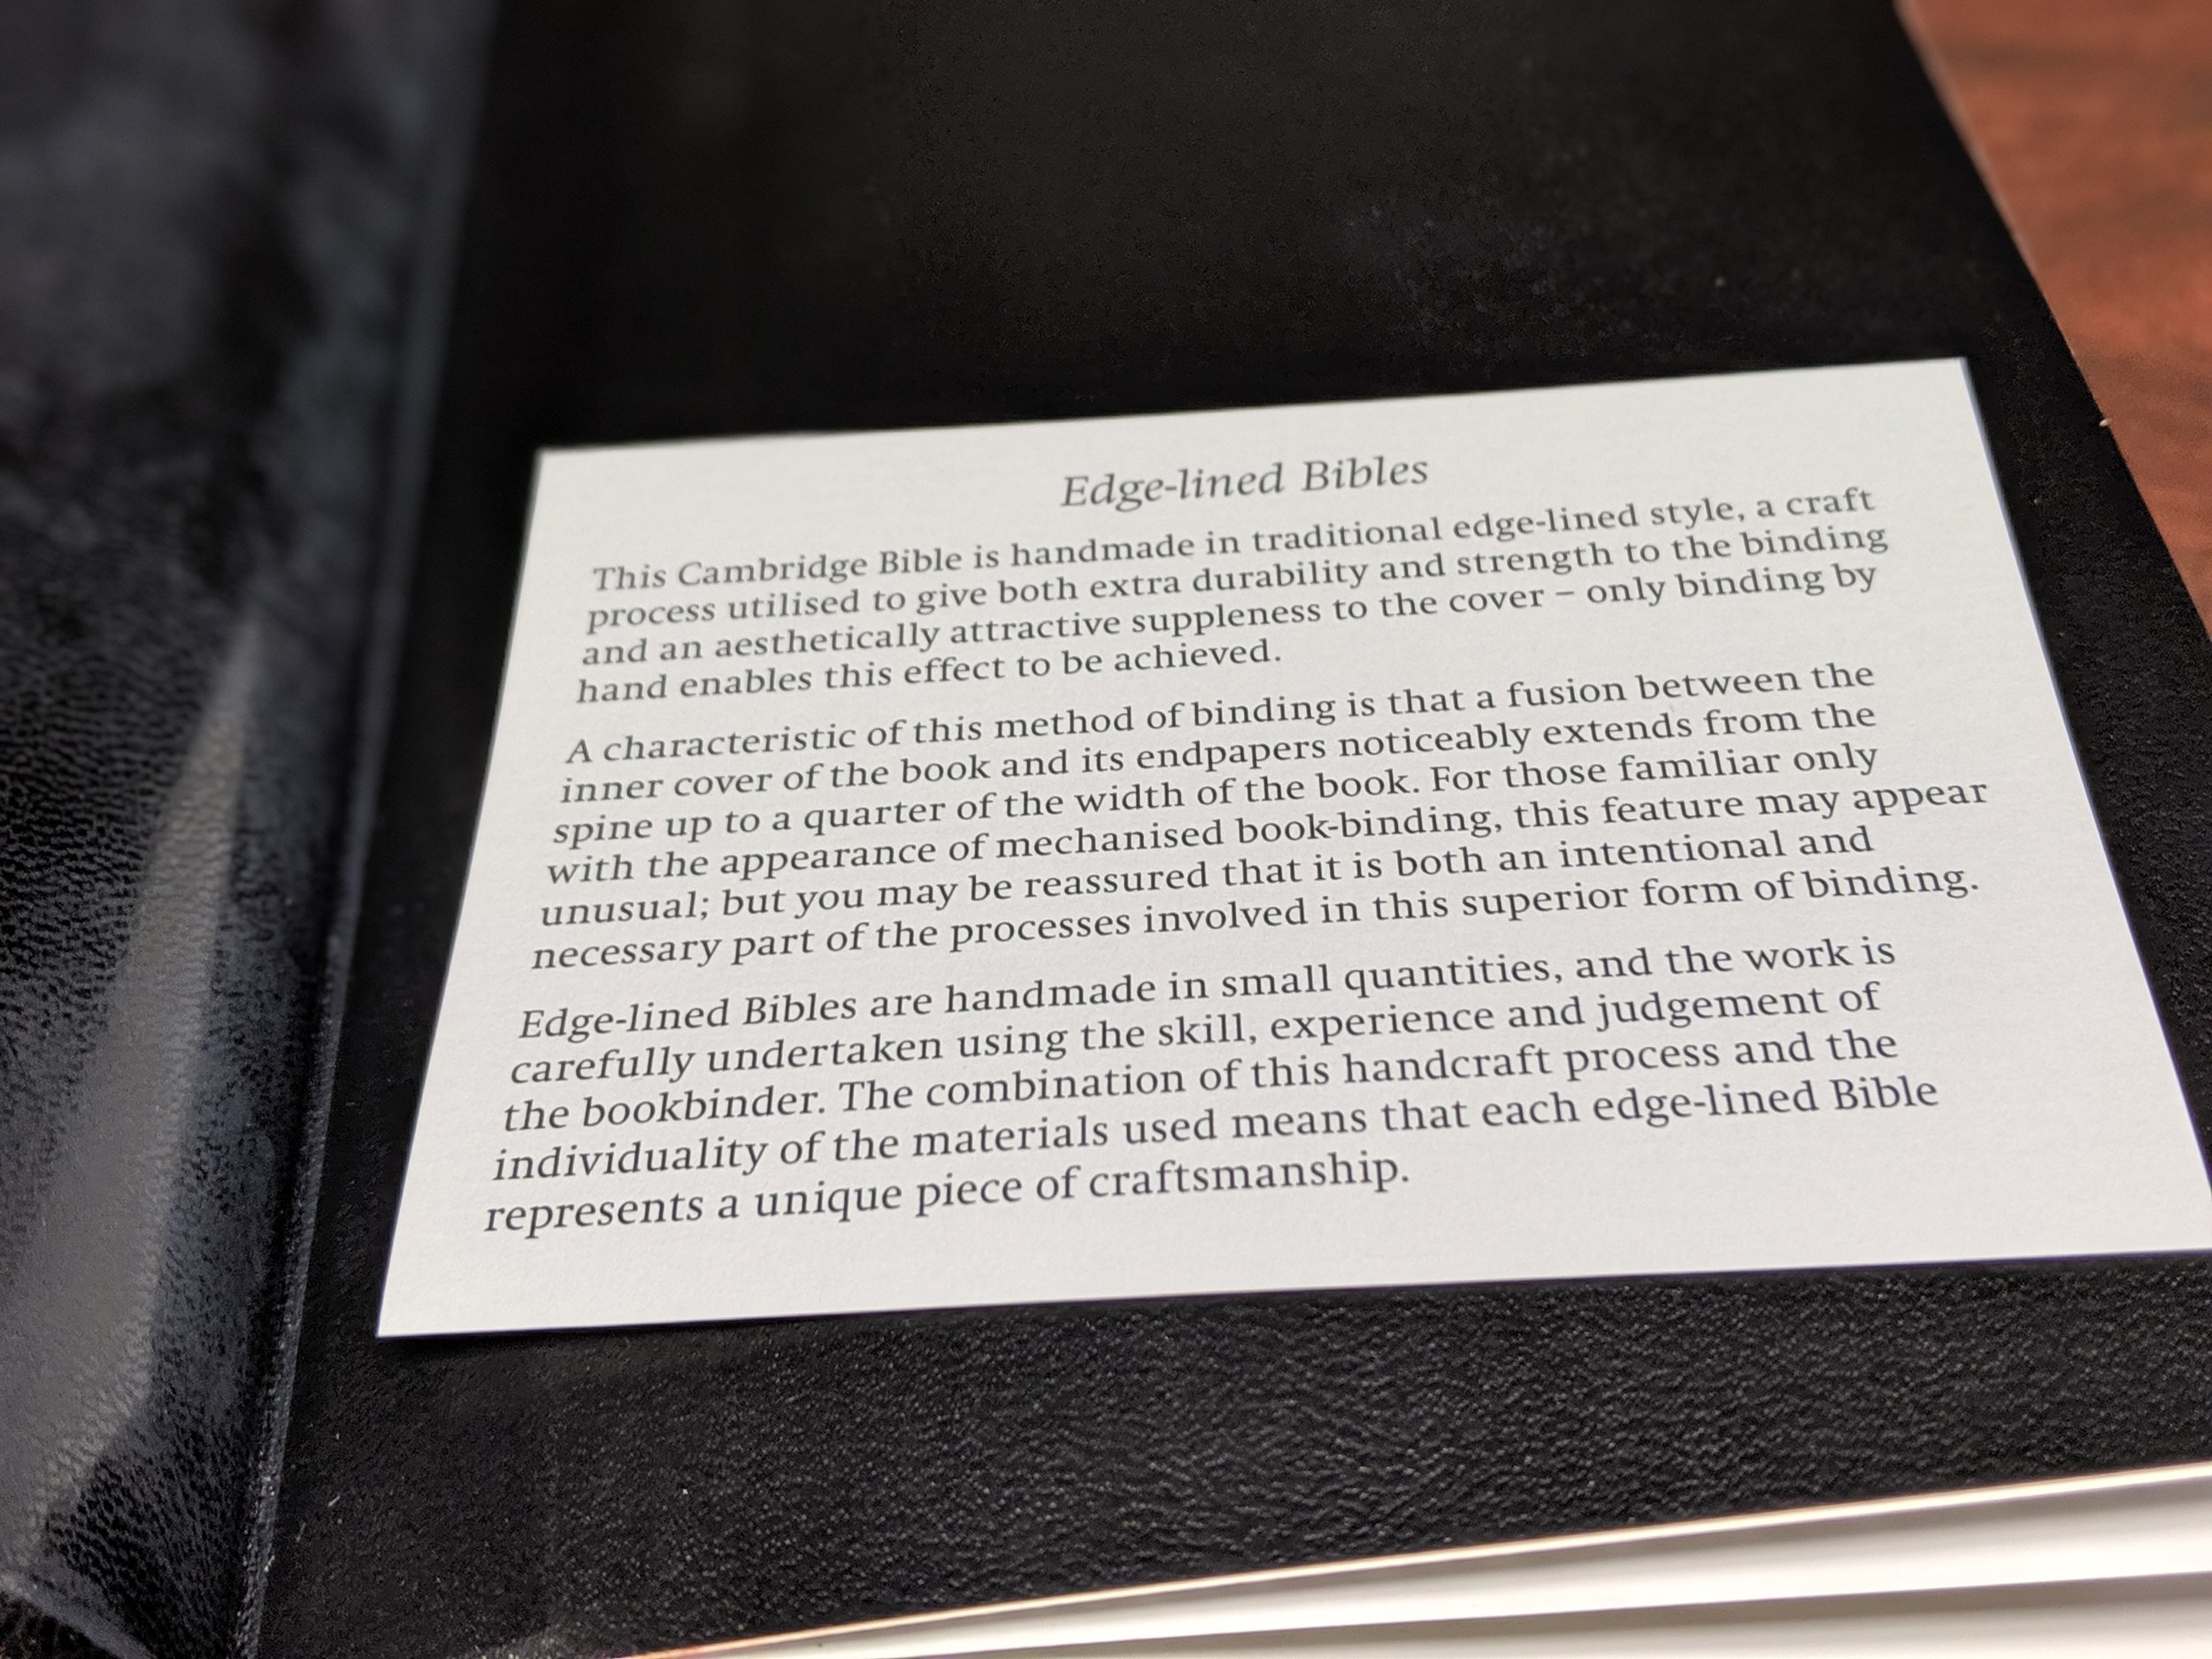 Edge-lined Bibles
This Cambridge Bible is handmade in traditional edge-lined style, a craft
process utilised to give both extra durability and strength to the binding
and an aesthetically attractive suppleness to the cover – only binding by
hand enables this effect to be achieved.
A characteristic of this method of binding is that a fusion between the
inner cover of the book and its endpapers noticeably extends from the
spine up to a quarter of the width of the book. For those familiar only
with the appearance of mechanised book-binding, this feature may appear
unusual; but you may be reassured that it is both an intentional and
necessary part of the processes involved in this superior form of binding.
Edge-lined Bibles are handmade in small quantities, and the work is
carefully undertaken using the skill, experience and judgement of
the bookbinder. The combination of this handcraft process and the
individuality of the materials used means that each edge-lined Bible
represents a unique piece of craftsmanship.